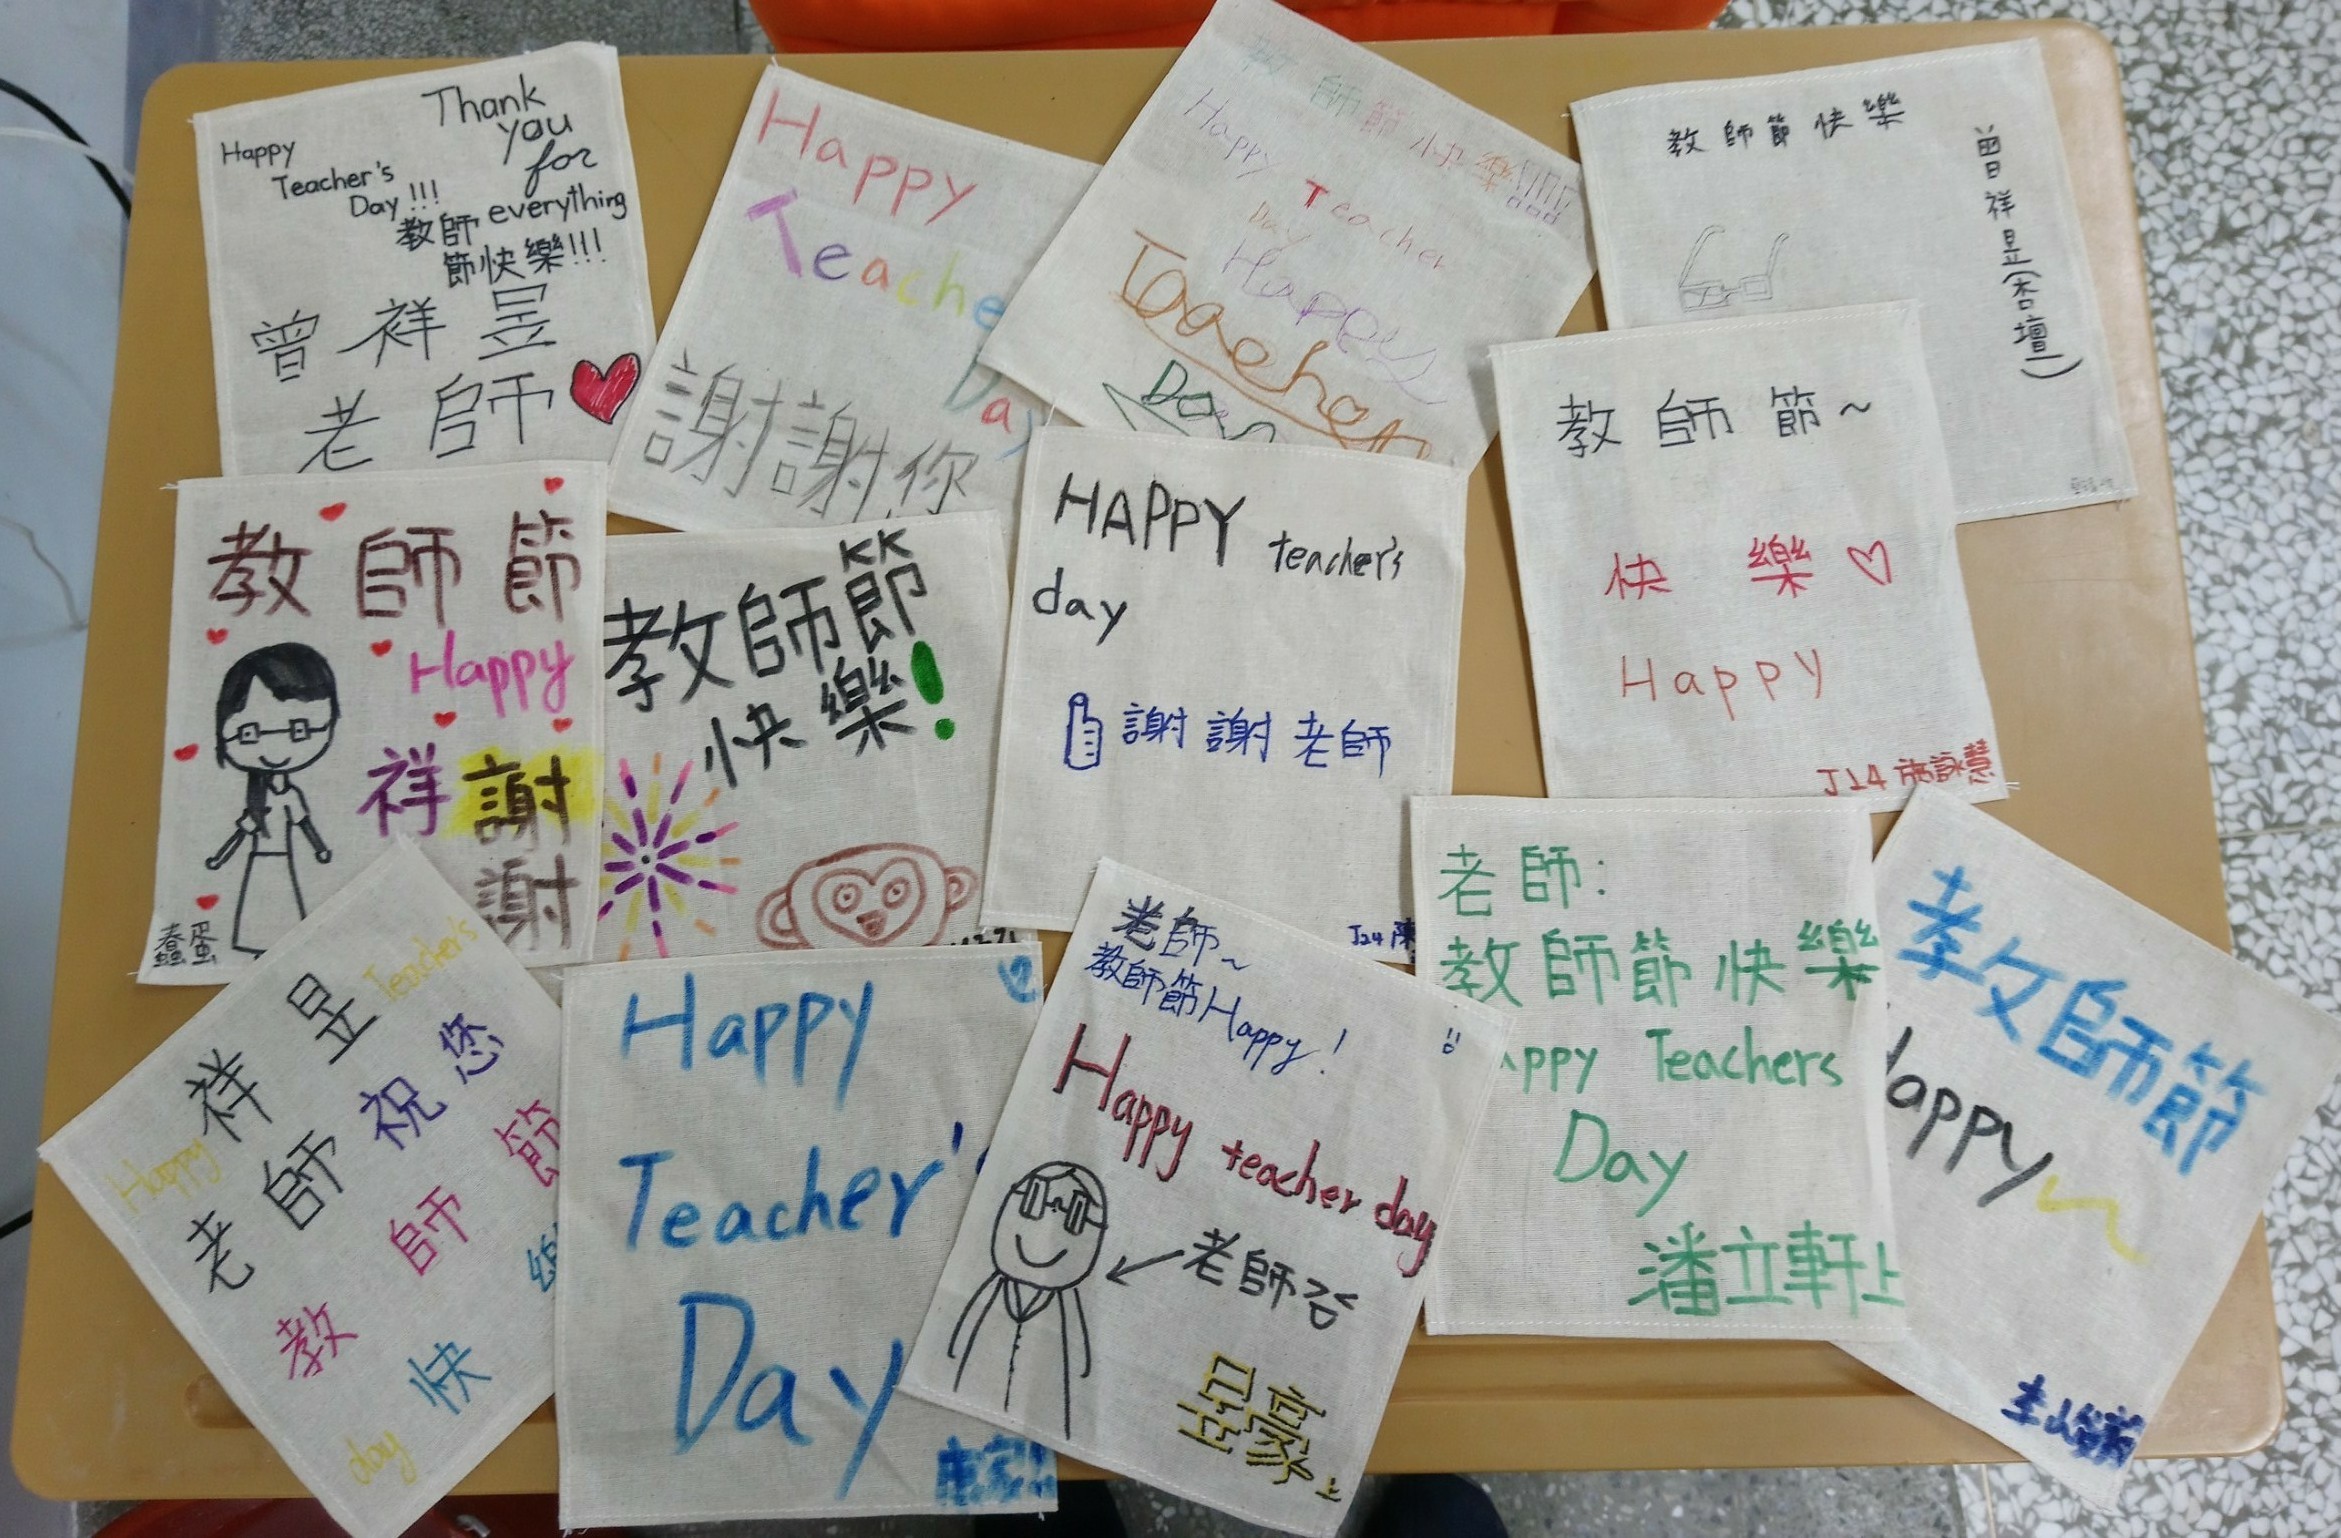 Happy
Teacher's
Day!!!
Thank
you
for
everything
教師
節快樂!!!
曾祥昱
老師
Happy
Teache
Day
謝謝你
教師節快樂!!!!!
Happy Teacher
Day
Happy
Teacher
Day
教師節快樂
曾祥昱(杏壇)
教師節~
快樂
Happy
J14 施詠慧
教師節
Happy
祥 謝
謝
蠢蛋
KK
教師節
快樂!
HAPPY teacher's
day
謝謝老師
J24 陳
祥昱
老師祝您
教師節
快
Happy
Teacher's
day
Happy
Teacher'
Day
老師~
教師節Happy!
Happy teacher day
老師
昱豪
上
老師:
教師節快樂
appy Teachers
Day
潘立軒上
教師節
Happy~